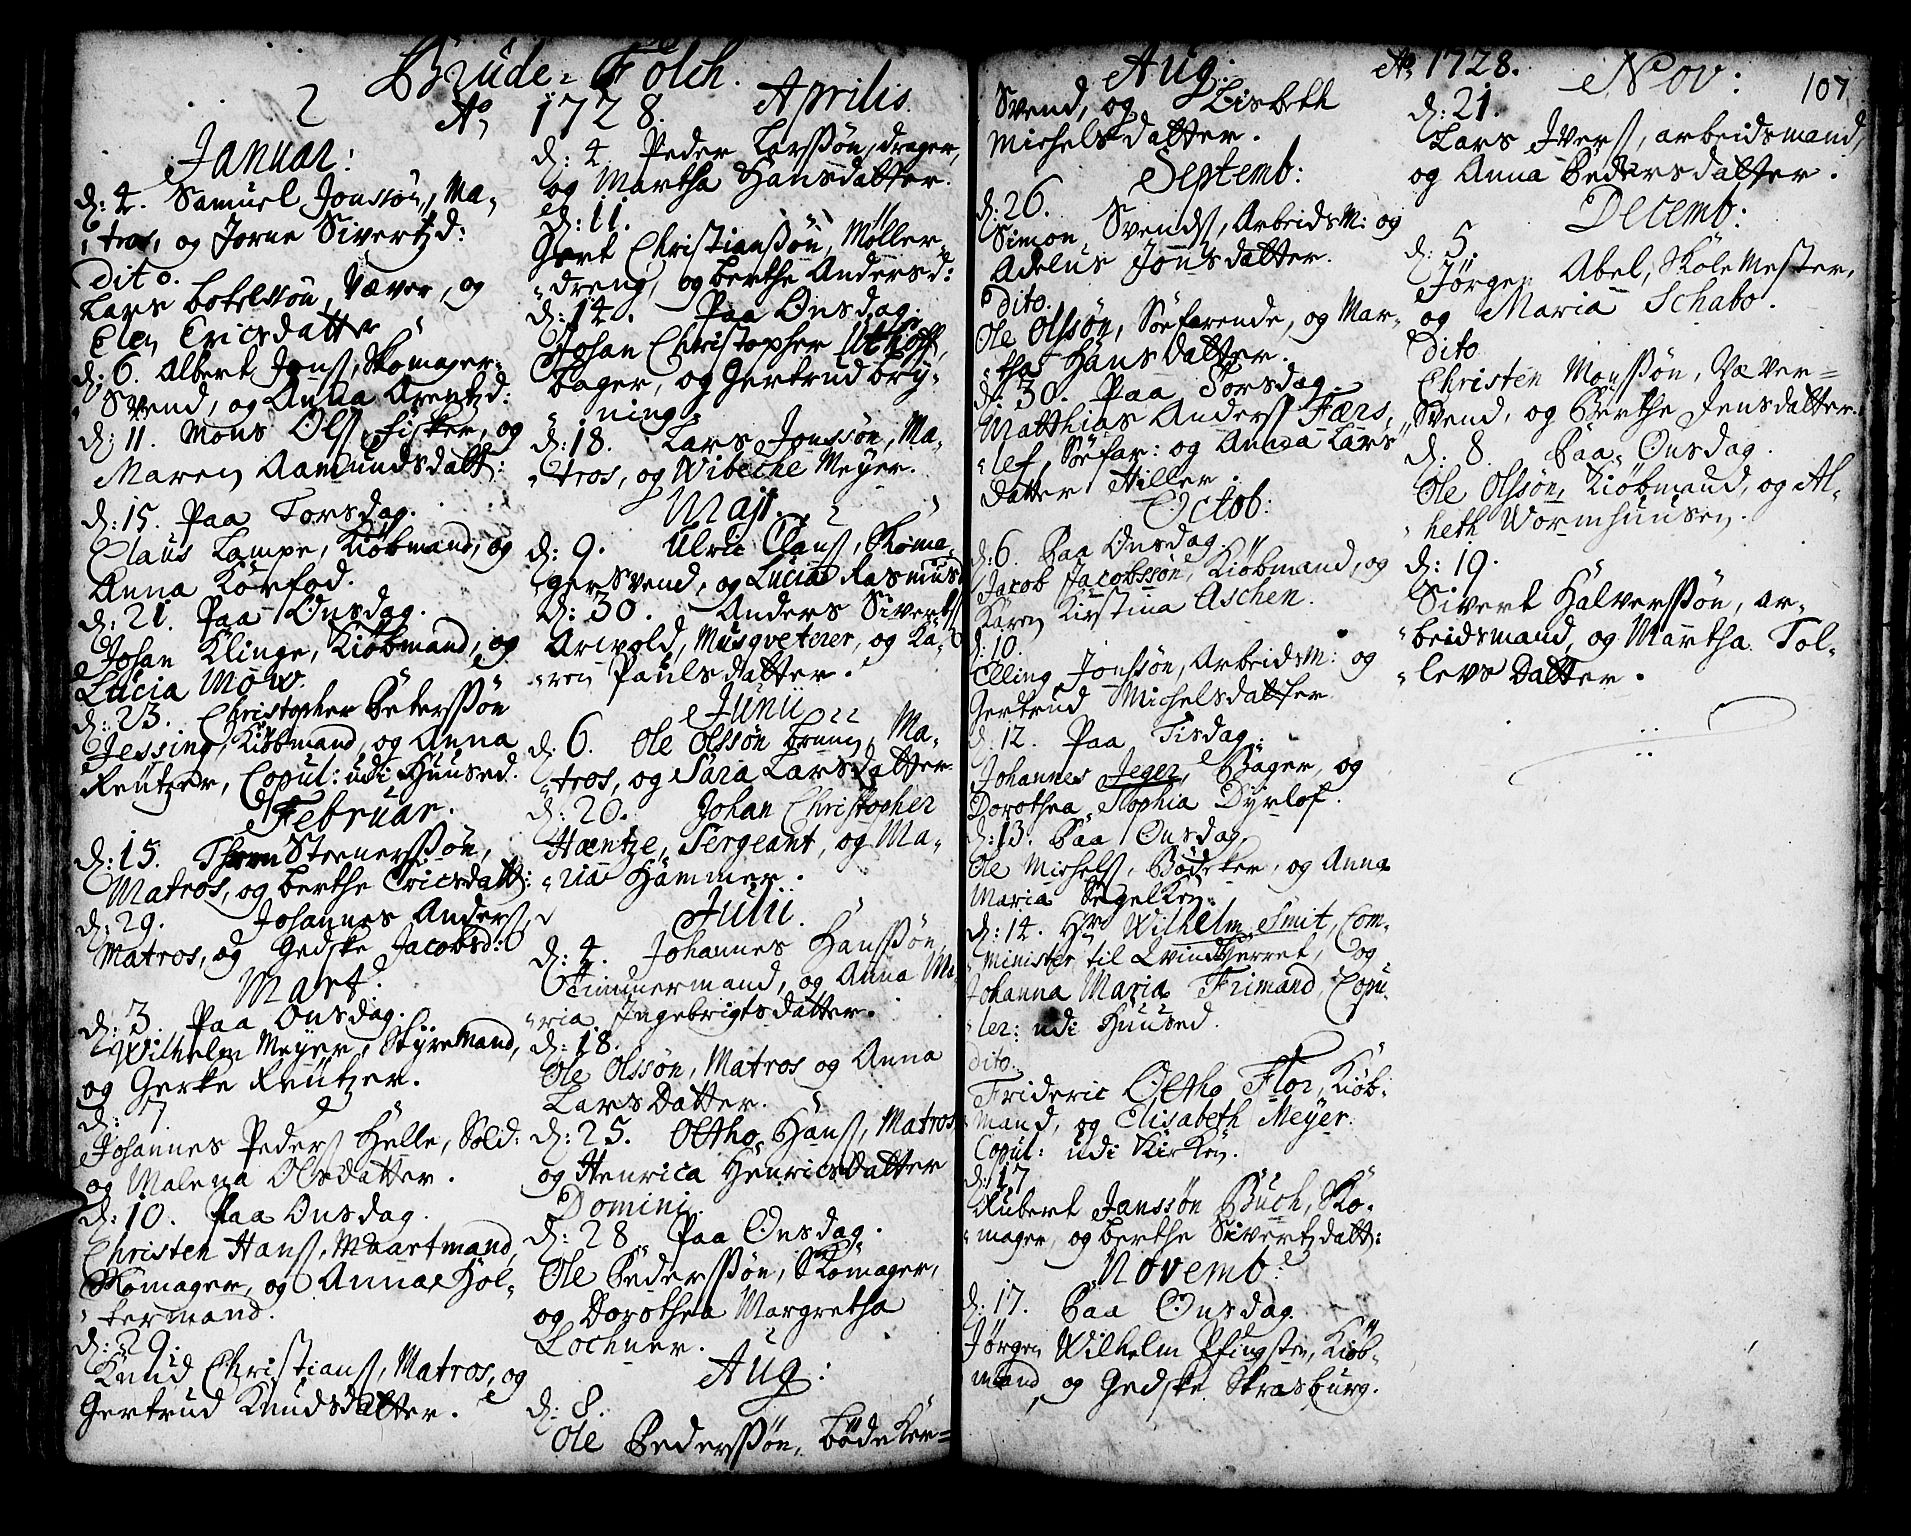 Brude-Folch.
Ao 1728.
Januar:
d: 4. Samuel Jonssøn, Ma-
tros, og Jorne Sivertzd:
Dito.
Lars botelssøn, Væver, og
Elen Ericsdatter
d: 6. Albert Jonss, Skomager-
Svend, og Anna Arentzd:
d: 11. Mons Olss, fisker, og
Maren Aamundsdatt:
d: 15. Paa Torsdag.
Claus Lampe, Kiøbmand, og
Anna Korfod.
d: 21. Paa Onsdag.
Johan Klinge, Kiøbmand, og
Lucia Mow.
d: 23. Christopher Pederssøn
Jessing, Kiøbmand, og Anna
Reutzer, Copul: udi Huused.
Februar.
d: 15. Steenerssøn,
Matros, og berthe Ericsdatt:
d: 29. Johannes Anderss,
Matros, og Gedske Jacobsd:
Mart.
d: 3. Paa Onsdag.
Wilhelm Meyer, Styremand,
og Gerke Reutzer.
d: 7.
Johannes Pederss Helle, Sold:
og Malena Olsdatter.
d: 10. Paa Onsdag.
Christen Hanss, Maartmand,
Skomager, og Anna Hol-
termand.
d: 29.
Knud Christianss, Matros, og
Gertrud Knudsdatter.
Aprilis
d: 4. Peder Larssøn, drager,
og Martha Hansdatter.
d: 11.
Gert Christianssøn, Møller-
dreng, og berthe Andersd:
d: 14. Paa Onsdag.
Johan Christopher Uthoff,
Bager, og Gertrud bry-
ning.
d: 18. Lars Jonssøn, Ma-
tros, og Wibeche Meyer.
Maji.
d: 9. Ulric Clauss, Skoma-
gersvend, og Lucia Rasmusd
d: 30. Anders Sivertss
Arwold, Musqveterer, og Ka-
ren Paulsdatter.
Junii
d: 6. Ole Olssøn bruun, Ma-
tros, og Sara Larsdatter
d: 20. Johan Christopher
Hæntze, Sergeant, og Ma-
ria Hammer.
Julii.
d: 4. Johannes Hanssøn,
Timmermand, og Anna Ma-
ria Ingebrigtsdatter.
d: 18.
Ole Olssøn, Matros og Anna
Larsdatter.
d: 25. Oltho Hanss, Matros
og Henrica Henricsdatter
Domini.
d: 28 Paa Onsdag.
Ole Pederssøn, Skomager,
og Dorothea Margretha
Lochner.
Aug:
d: 8.
Ole Pederssøn, bødeker-
Aug: Ao 1728.
107
Svend, og Lisbeth
Michelsdatter.
Septemb:
d: 26.
Simon Svends, Arbeids M: og
Adelus Jonsdatter.
Dito.
Ole Olssøn, Søefarende, og Mar-
tha Hansdatter.
d: 30. Paa Torsdag.
Matthias Anderss Færs,
lef, Søefar: og Anna Lars
datter Hiller.
Octob:
d: 6. Paa Onsdag.
Jacob Jacobssøn, Kiøbmand, og
Karen Kirstina Aschen.
d: 10.
Elling Jonssøn, Arbeids M: og
Gertrud Michelsdatter
d: 12. Paa Tisdag.
Johannes Jeger, Bager, og
Dorothea Sophia Dyrlof.
d: 13. Paa Onsdag
Ole Michelss, Bødeker, og Anna
Maria Segelken.
d: 14. Hr Wilhelm Smit, Com-
minister til Qvindherret, og
Johanna Maria Frimand, Copu-
ler: udi Huused.
dito.
Frideric Oltho Flor, Kiøb-
mand, og Elisabeth Meyer.
Copul: udi Kirken.
d: 17
Rubert Janssøn Buch, Sko-
mager, og berthe Sivertzdatt:
Novemb:
d: 17. Paa Onsdag.
Jørgen Wilhelm Pfingsten, Kiøb-
mand, og Gedske Strasburg.
Nov:
d: 21.
Lars Iverss, arbeidsmand,
og Anna Pedersdatter.
Decemb:
d: 5.
Jørgen Abel, SkoleMester,
og Maria Schabo.
Dito
Christen Monssøn, Væver-
Svend, og Berthe Jensdatter.
d: 8. Paa Onsdag.
Ole Olssøn, Kiøbmand, og Al-
heth Wormhuusen.
d: 19.
Sivert Halverssøn, ar-
beidsmand, og Martha Tol-
levsdatter.